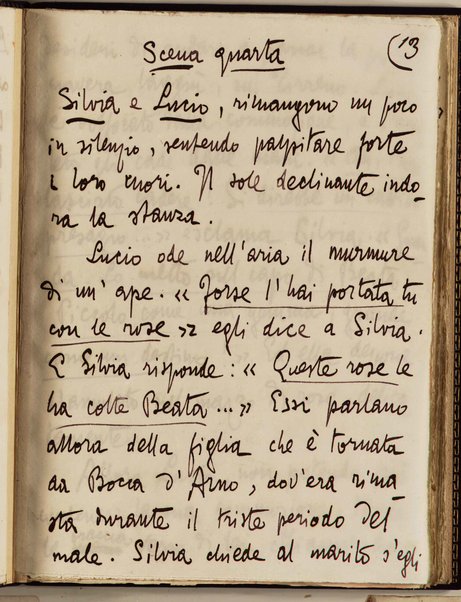 Scena quarta (13
Silvia e Lucio, rimangono un poco
in silenzio, sentendo palpitare forte
i loro cuori. Il sole declinante indo-
ra la stanza.
Lucio ode nell'aria il murmure
di un'ape. « Forse l'hai portata tu
con le rose » egli dice a Silvia.
E Silvia risponde : « Queste rose le
ha colte Beata ...» Essi parlano
allora della figlia che è tornata
da Bocca d'Arno, dov'era rima
sta durante il triste periodo del
male. Silvia chiede al marito s'egli